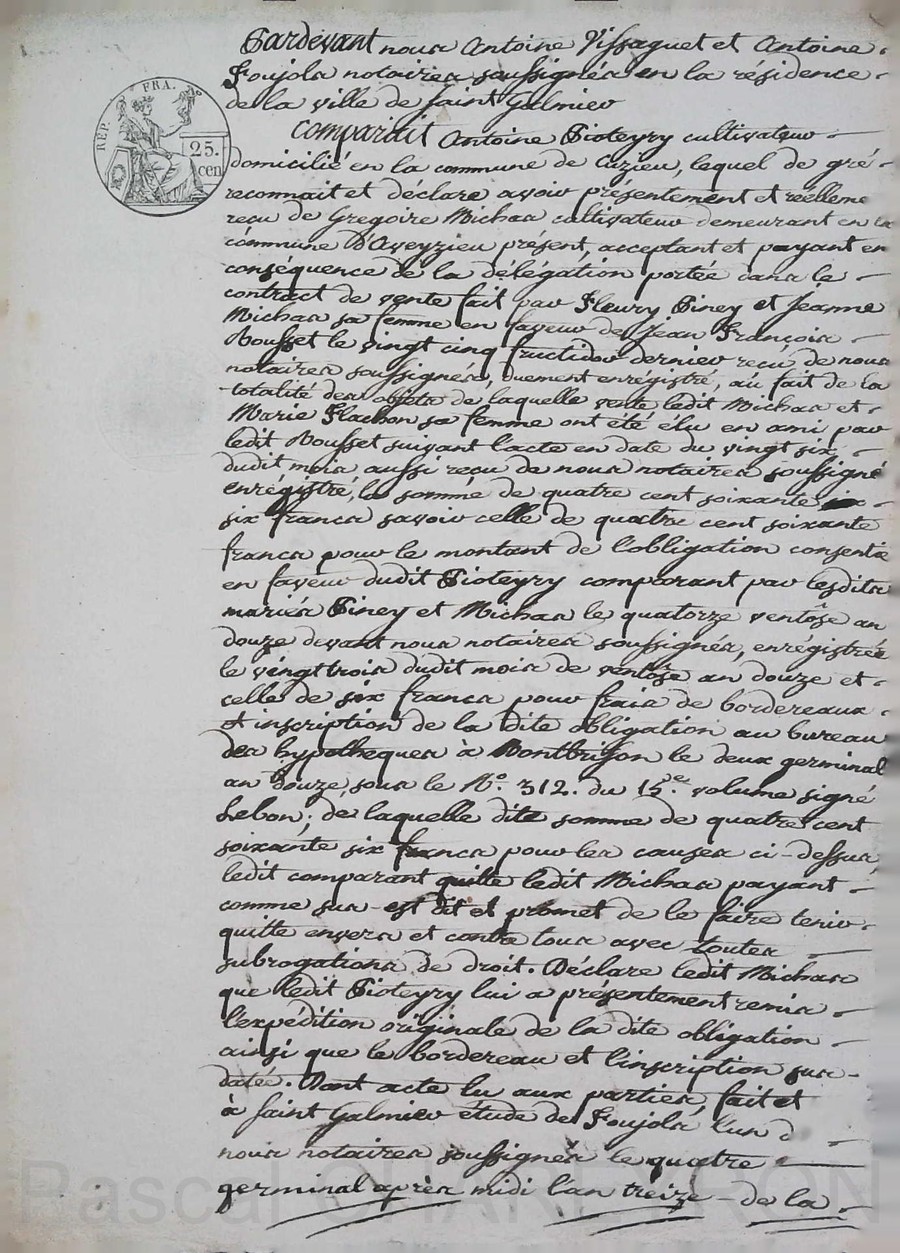 REP. FRA.
25.
cen
Pardevant nous Antoine Vissaguet et Antoine
Foujols notaires soussignés en la résidence
de la ville de Saint Galmier
Comparait Antoine Pioteyry cultivateur
domicilié en la commune de Cuzieu, lequel de gré
reconnait et déclare avoir présentement et réelleme
reçu de Gregoire Michas cultivateur demeurant en la
commune d'Aveyzieu présent, acceptant et payant en
conséquence de la délégation portée dans le
contract de vente fait par Fleury Piney et Jeanne
Michas sa femme en faveur de Jean François
Rousset le vingt cinq fructidor dernier reçu de nous
notaires soussignés, duement enrégistré, au fait de la
totalité des objets de laquelle vente ledit Michas et
Marie Flachon sa femme ont été élu en ami par
ledit Rousset suivant l'acte en date du vingt six
dudit mois aussi reçu de nous notaires soussigné
enrégistré, la somme de quatre cent soixante
six francs savoir celle de quatre cent soixante
francs pour le montant de l'obligation consentie
en faveur dudit Pioteyry comparant par lesdits
mariés Piney et Michas le quatorze ventôse an
douze devant nous notaires soussignés, enrégistrée
le vingt trois dudit mois de ventôse an douze et
celle de six francs pour frais de bordereaux
et inscription de la dite obligation au bureau
des hypotheques à Montbrison le deux germinal
an douze, sous le No. 312. du 15e. volume signé
Lebon; de laquelle dite somme de quatre cent
soixante six francs pour les causes ci-dessus,
ledit comparant quitte ledit Michas payant
comme sus-est dit et promet de le faire tenir
quitte envers et contre tous avec toutes
subrogations de droit. Déclare ledit Michas
que ledit Pioteyry lui a présentement remis
l'expédition originale de la dite obligation
ainsi que le bordereau et l'inscription sus-
datée. Dont acte lu aux parties, fait et
à Saint Galmier étude de Foujols l'un d
nous notaires soussignés le quatre
germinal après midi l'an treize de la
Pascal CHAREYRON